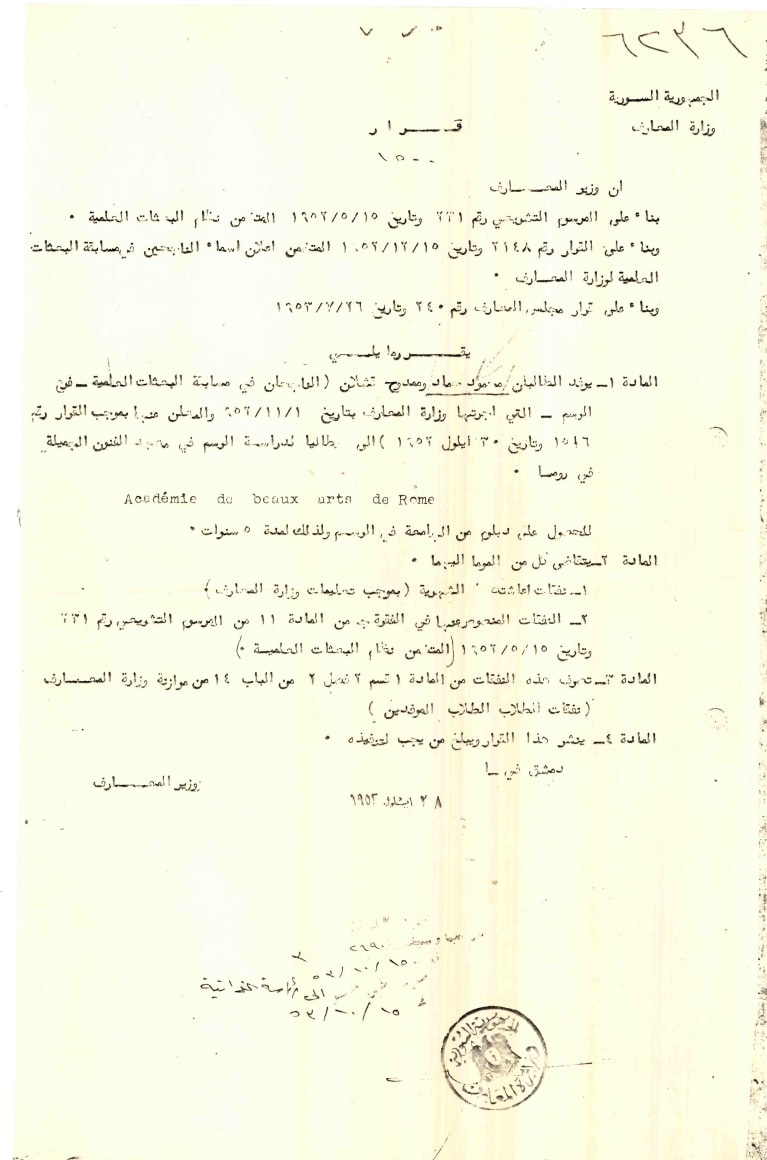 ٦٢٣٦
الجمهورية السورية
وزارة المعارف
قـــرار
١٥٠٠
ان وزير المعـــارف
بناء على المرسوم التشريعي رقم ٢٣١ وتاريخ ١٩٥٢/٥/١٥ المتضمن نظام البعثات العلمية ٠
وبناء على القرار رقم ٢١٤٨ وتاريخ ١٩٥٢/١٢/١٥ المتضمن اعلان اسماء الناجحين في مسابقة البعثات
العلمية لوزارة المعارف ٠
وبناء على قرار مجلس المعارف رقم ٢٤٠ وتاريخ ١٩٥٣/٧/٢٦
يقـــرر ما يلـــي
المادة ١ــ يوفد الطالبان محمود حماد وممدوح قشلان (الناجحان في مسابقة البعثات العلمية ــ فرع
الرسم ــ التي اجرتها وزارة المعارف بتاريخ ٩٥٢/١١/١ والمعلن عنها بموجب القرار رقم
١٥٤٦ وتاريخ ٣٠ ايلول ١٩٥٢ ) الى ايطاليا لدراسة الرسم في معهد الفنون الجميلة
في روما ٠
Académie de beaux arts de Rome
للحصول على دبلوم من الجامعة في الرسم وذلك لمدة ٥ سنوات ٠
المادة ٢ــ يتقاضى كل من الموما اليهما ٠
١ــ نفقات اعاشته الشهرية (بموجب تعليمات وزارة المعارف)
٢ــ النفقات المنصوص عنها في الفقرة من المادة ١١ من المرسوم التشريعي رقم ٢٣١
وتاريخ ١٩٥٢/٥/١٥ (المتضمن نظام البعثات العلمية ٠)
المادة ٣ــ تصرف هذه النفقات من المادة ١ قسم ٢ فصل ٢ من الباب ١٤ من موازنة وزارة المعـــارف
(نفقات الطلاب الطلاب الموفدين )
المادة ٤ــ ينشر هذا القرار ويبلغ من يجب لتنفيذه ٠
دمشق في
وزير المعـــارف
٢٨ ايلول ١٩٥٣
٥٣/١٠/١٥
الى
٥٣/١٠/١٥
الجمهورية السورية
وزارة المعارف